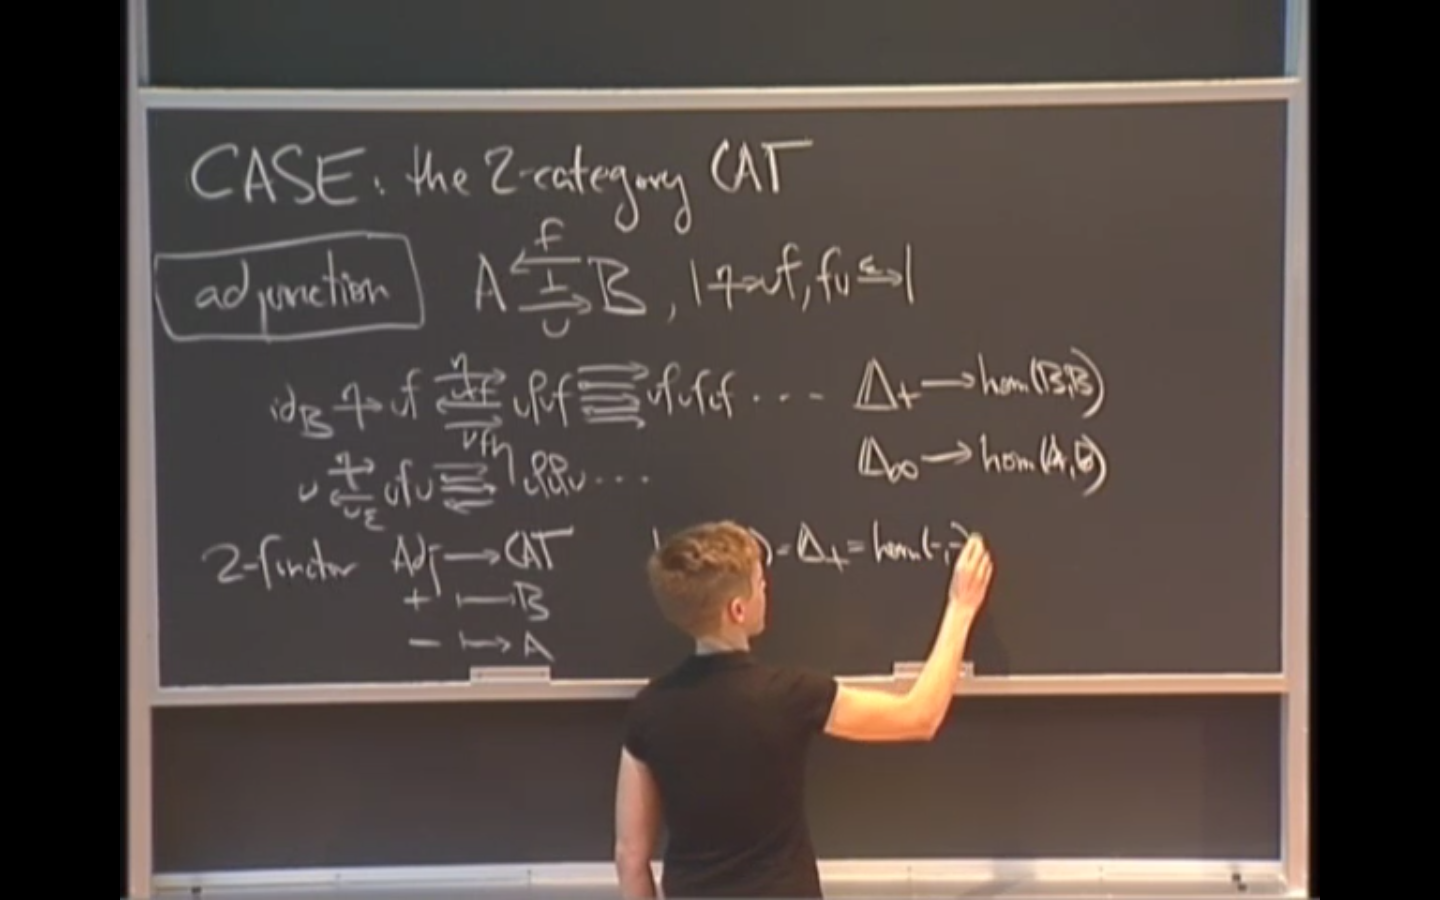 CASE: the 2-category CAT
adjunction A ⇄ B, 1 η⇒ uf, fu ε⇒ 1
f
⊥
u
id_B η→ uf ufuf ufufuf ···· Δ₊ → hom(B,B)
η
uεf
ufη
u ufu ufufu ··· Δ∞ → hom(A,B)
η
uε
2-functor Adj → CAT ) = Δ₊ = hom(-,-)
+ ↦ B
− ↦ A